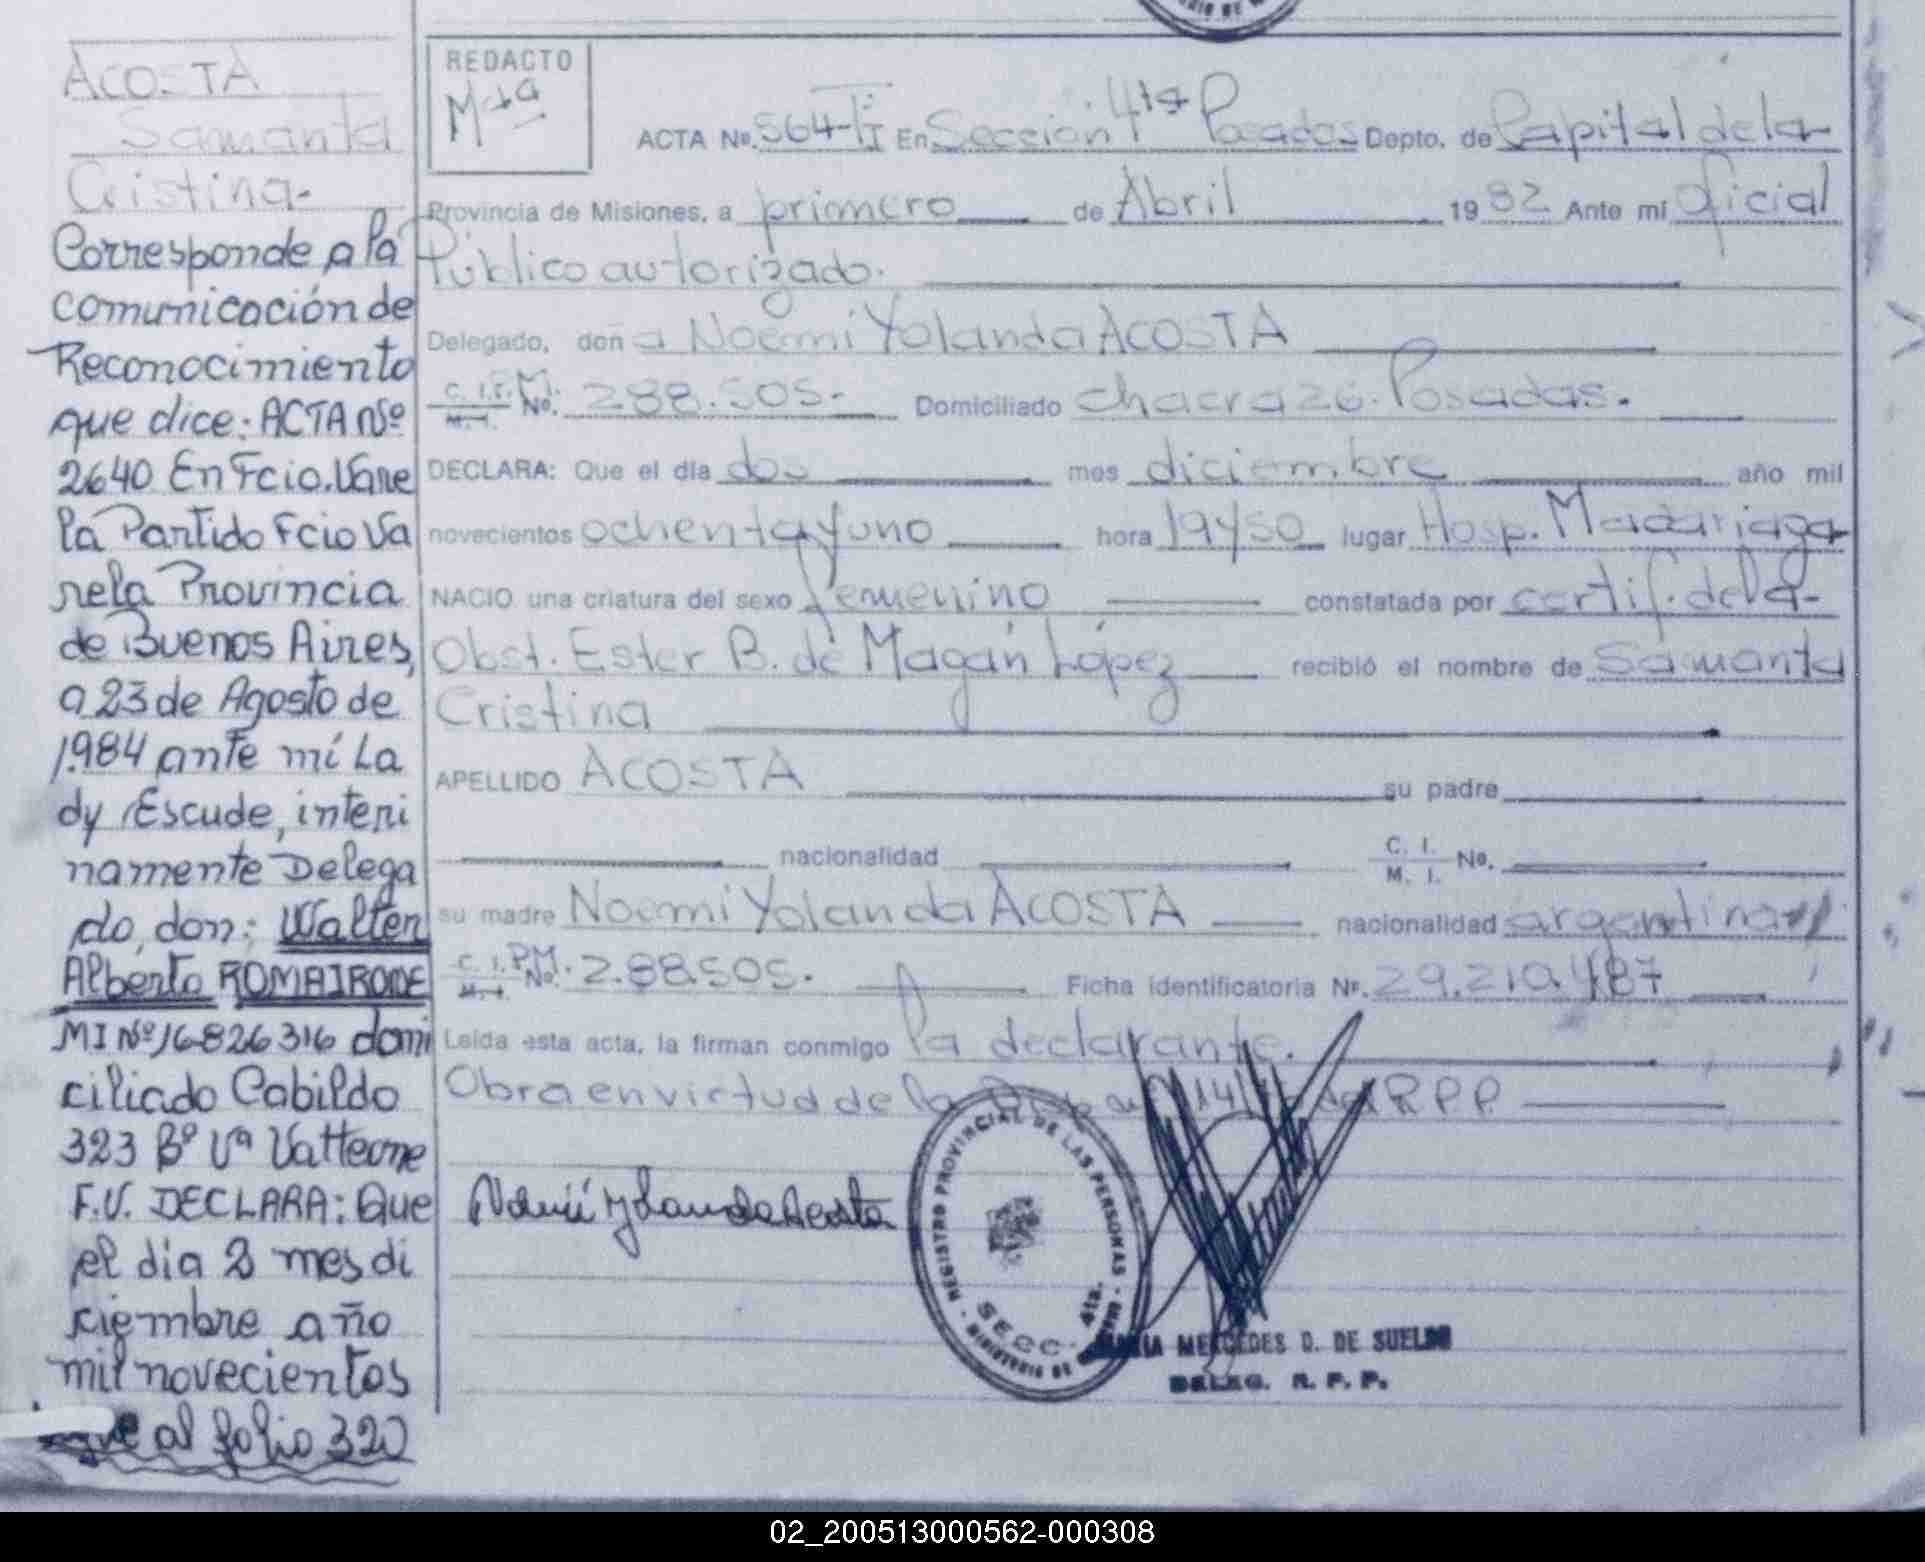 ACOSTA
Samanta
Cristina-
Corresponde a la
comunicación de
Reconocimiento
que dice: ACTA Nº
2640 En Fcio. Vare
la Partido Fcio Va
rela Provincia
de Buenos Aires,
a 23 de Agosto de
1.984 ante mí La
dy Escude, interi
namente Delega
do, don: Walter
Alberto ROMAIRONE
MI Nº 16826316 domi
ciliado Cabildo
323 Bº Vª Vatteone
F.V. DECLARA: Que
el dia 2 mes di
ciembre año
mil novecientos
sigue al folio 320
REDACTO
ACTA Nº. 564-TI En Sección 4ta Posadas Depto. de Capital de la
Provincia de Misiones, a primero de Abril 1982 Ante mí Oficial
Público autorizado.
Delegado, doña Noemi Yolanda ACOSTA
C. I.P.M. Nº. 288.505. Domiciliado chacra 26. Posadas.
M. I.
DECLARA: Que el día dos mes diciembre año mil
novecientos ochenta y uno hora 19y50 lugar Hosp. Madariaga
NACIO una criatura del sexo femenino constatada por certif. de la
Obst. Ester B. de Magán López recibió el nombre de Samanta
Cristina
APELLIDO ACOSTA su padre
nacionalidad C. I. Nº.
M. I.
su madre Noemi Yolanda ACOSTA nacionalidad argentina
C. I.P.M. Nº. 288.505. Ficha identificatoria Nº. 29.210.487
M. I.
Leída esta acta, la firman conmigo la declarante.
Obra en virtud de la R.P.P.
Noemí Yolanda Acosta
REGISTRO PROVINCIAL DE LAS PERSONAS
SECC. 4ta.
MINISTERIO DE
MARIA MERCEDES D. DE SUELDO
DELEG. R. P. P.
02_200513000562-000308